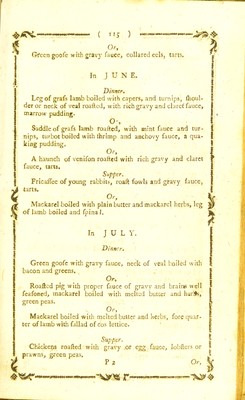 ( 115 )
Or,
Green goose with gravy sauce, collared eels, tarts.
In JUNE.
Dinner.
Leg of grass lamb boiled with capers, and turnips, shoul-
der or neck of veal roasted, with rich gravy and claret sauce,
marrow pudding.
Or,
Saddle of grass lamb roasted, with mint sauce and tur-
nips, turbot boiled with shrimp and anchovy sauce, a qua-
king pudding.
Or,
A haunch of venison roasted with rich gravy and claret
sauce, tarts.
Supper.
Fricassee of young rabbits, roast fowls and gravy sauce,
tarts.
Or,
Mackarel boiled with plain butter and mackarel herbs, leg
of lamb boiled and spinach.
In JULY.
Dinner.
Green goose with gravy sauce, neck of veal boiled with
bacon and greens.
Or,
Roasted pig with proper sauce of gravy and brains well
seasoned, mackarel boiled with melted butter and herbs,
green peas.
Or,
Mackarel boiled with melted butter and herbs, fore quar-
ter of lamb with sallad of cos lettice.
Supper.
Chickens roasted with gravy or egg sauce, lobsters or
prawns, green peas.
P 2
Or,